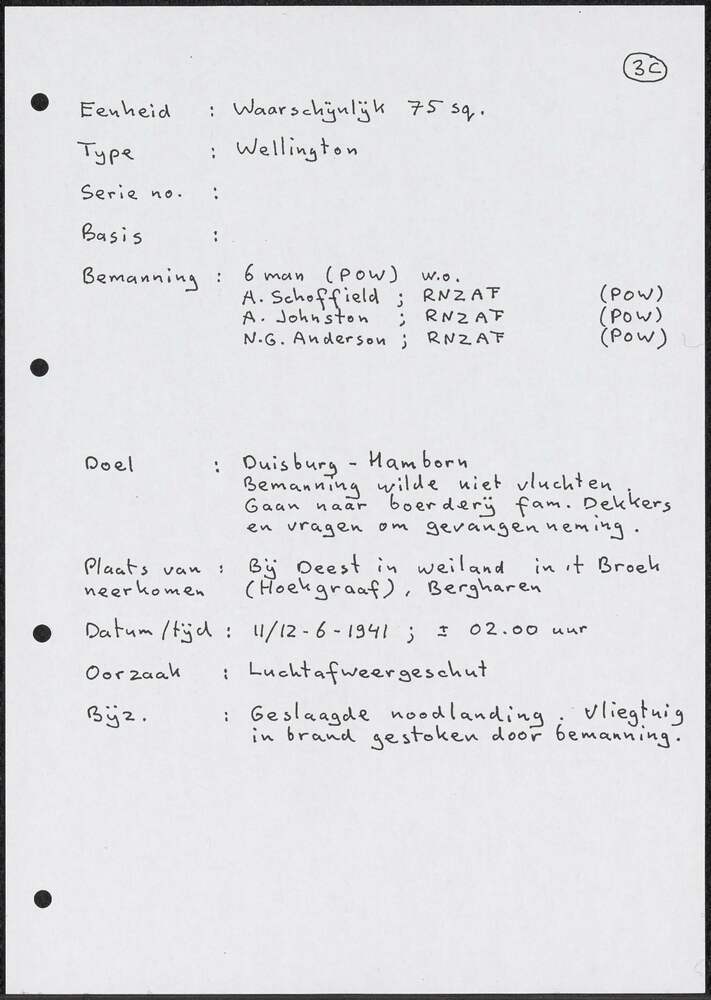 3C
Eenheid : Waarschijnlijk 75 sq.
Type : Wellington
Serie no. :
Basis :
Bemanning : 6 man (POW) w.o.
A. Schoffield ; RNZAF (POW)
A. Johnston ; RNZAF (POW)
N.G. Anderson ; RNZAF (POW)
Doel : Duisburg - Hamborn
Bemanning wilde niet vluchten.
Gaan naar boerderij fam. Dekkers
en vragen om gevangenneming.
Plaats van : Bij Deest in weiland in 't Broek
neerkomen (Hoekgraaf), Bergharen
Datum/tijd : 11/12-6-1941 ; ± 02.00 uur
Oorzaak : Luchtafweergeschut
Bijz. : Geslaagde noodlanding. Vliegtuig
in brand gestoken door bemanning.